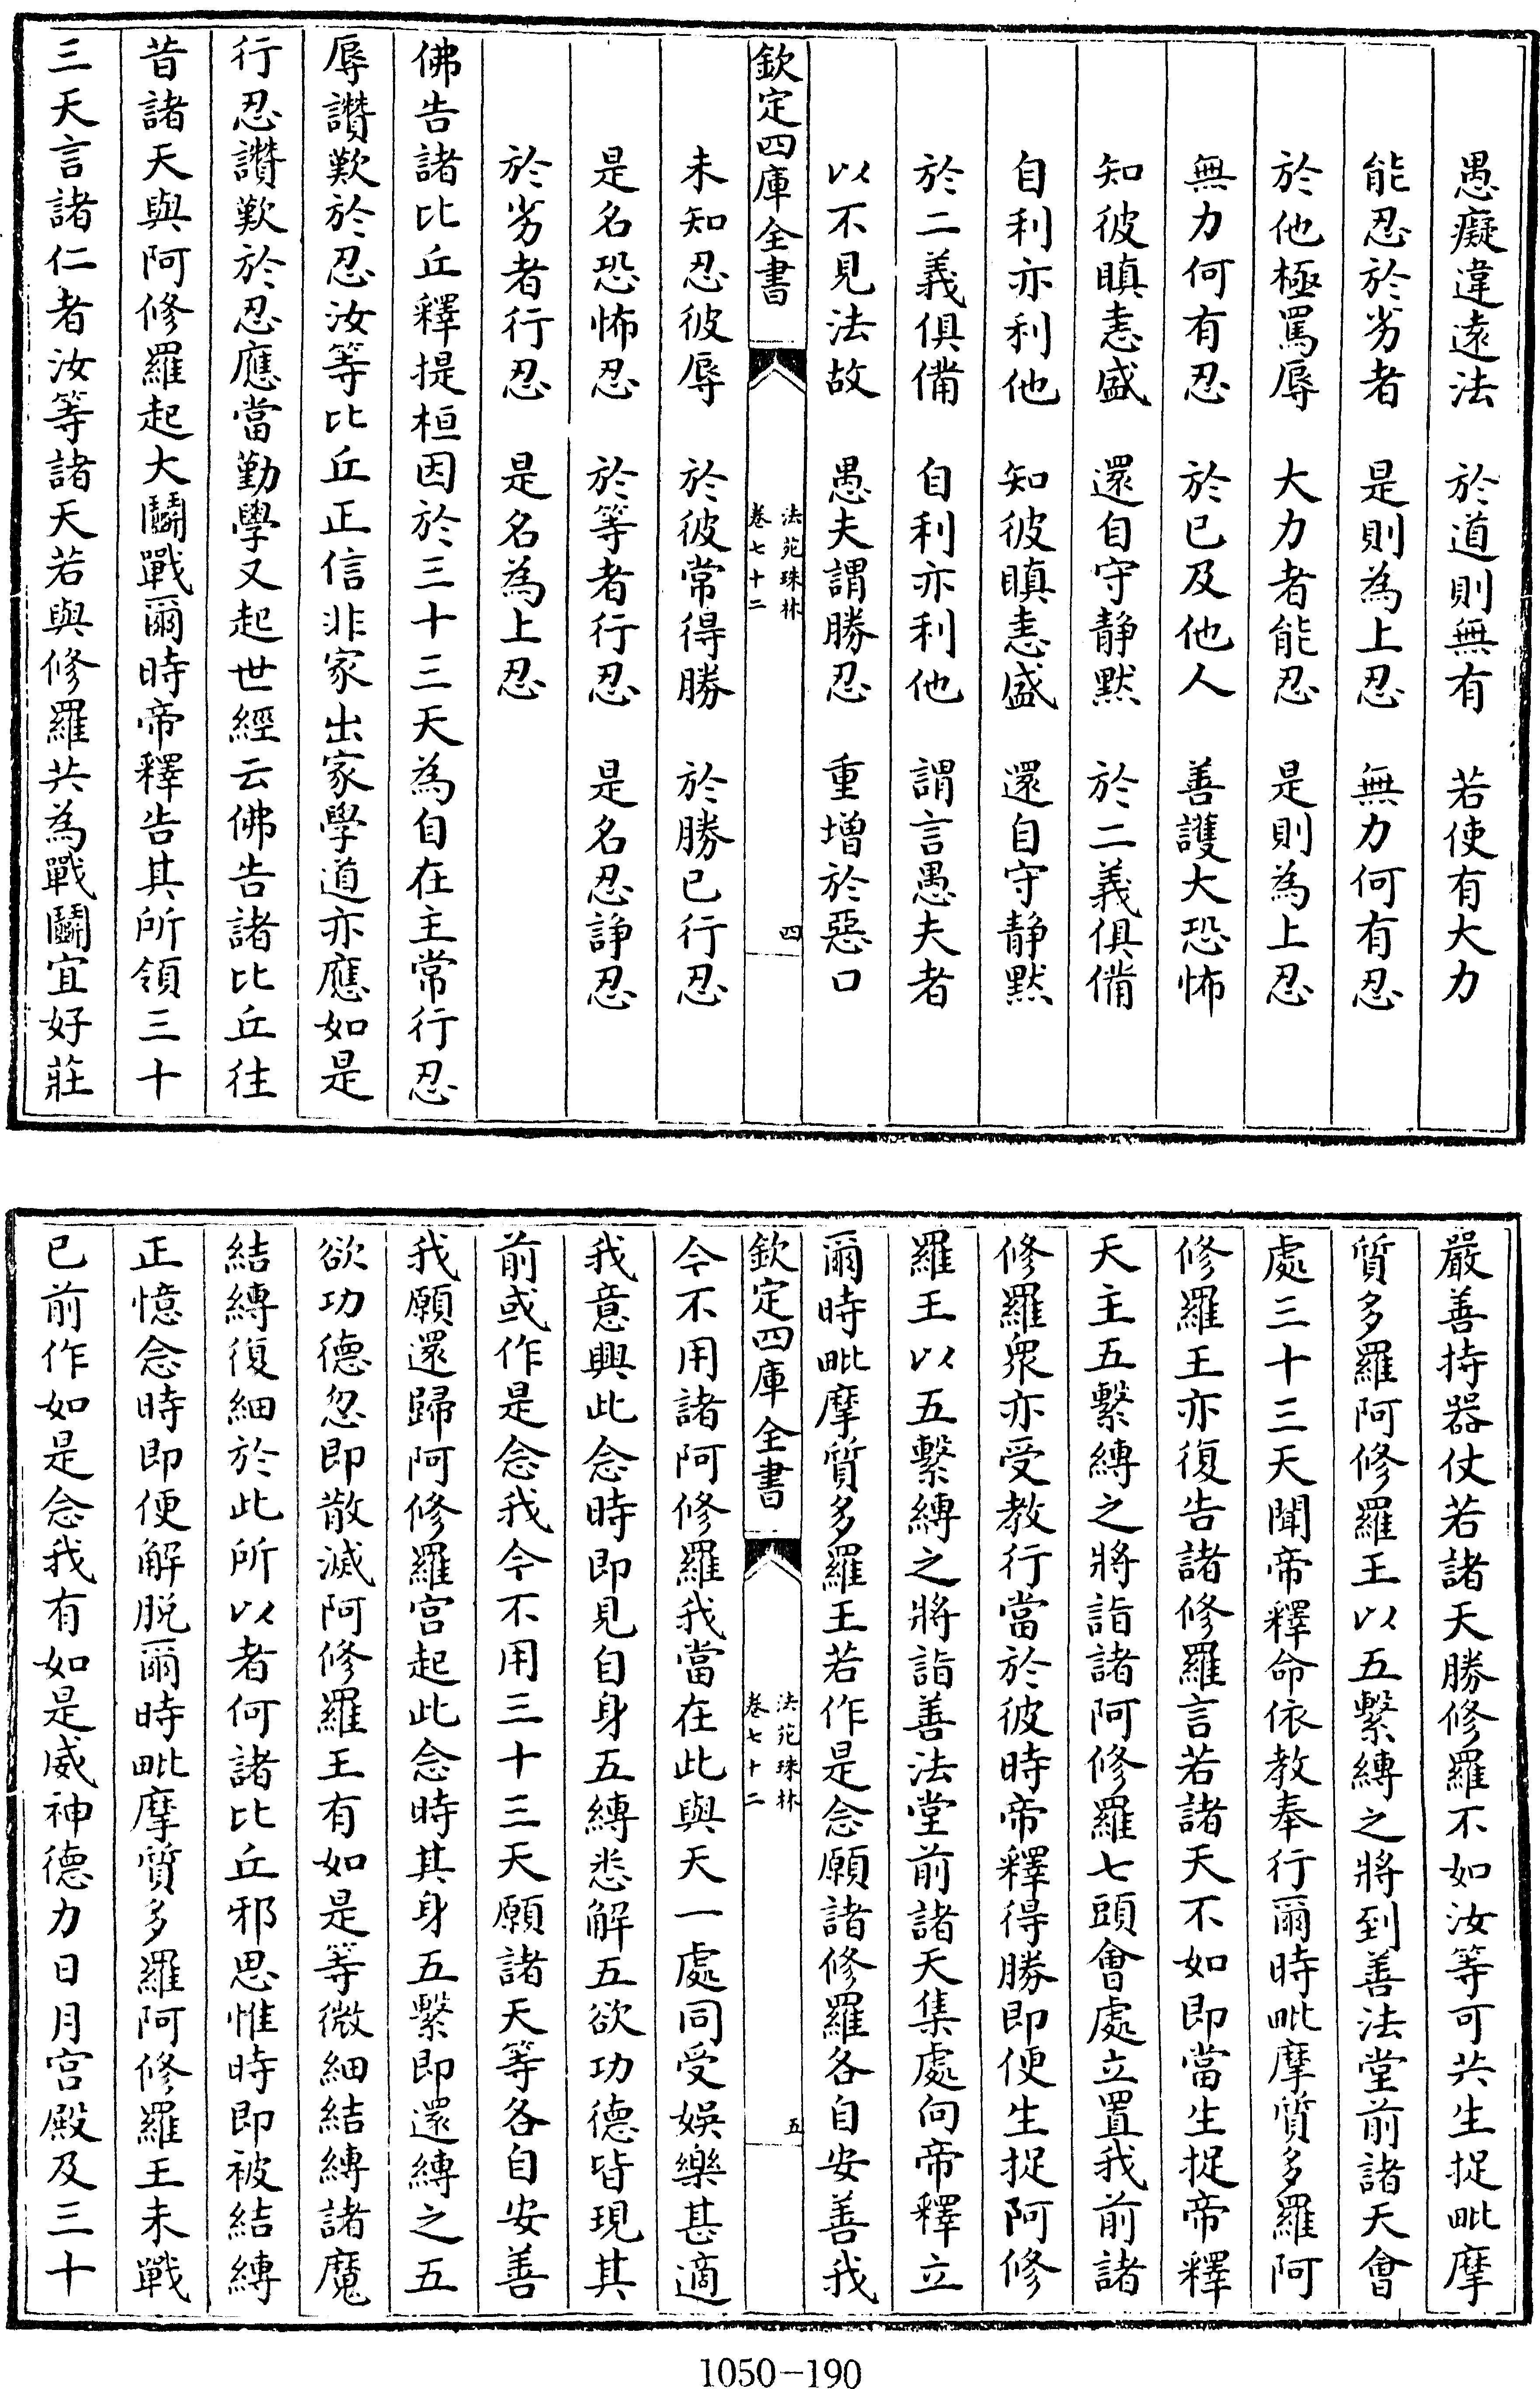 愚癡違遠法　於道則無有　若使有大力
能忍於劣者　是則為上忍　無力何有忍
於他極罵辱　大力者能忍　是則為上忍
無力何有忍　於已及他人　善護大恐怖
知彼瞋恚盛　還自守靜黙　於二義俱備
自利亦利他　知彼瞋恚盛　還自守靜黙
於二義俱備　自利亦利他　謂言愚夫者
以不見法故　愚夫謂勝忍　重增於惡口
欽定四庫全書　法苑珠林　卷七十二　四
未知忍彼辱　於彼常得勝　於勝已行忍
是名恐怖忍　於等者行忍　是名忍諍忍
於劣者行忍　是名為上忍
佛告諸比丘釋提桓因於三十三天為自在主常行忍
辱讚歎於忍汝等比丘正信非家出家學道亦應如是
行忍讚歎於忍應當勤學又起世經云佛告諸比丘往
昔諸天與阿修羅起大鬭戰爾時帝釋告其所領三十
三天言諸仁者汝等諸天若與修羅共為戰鬭宜好莊
嚴善持器仗若諸天勝修羅不如汝等可共生捉毗摩
質多羅阿修羅王以五繫縛之將到善法堂前諸天會
處三十三天聞帝釋命依教奉行爾時毗摩質多羅阿
修羅王亦復告諸修羅言若諸天不如即當生捉帝釋
天主五繫縛之將詣諸阿修羅七頭會處立置我前諸
修羅眾亦受教行當於彼時帝釋得勝即便生捉阿修
羅王以五繫縛之將詣善法堂前諸天集處向帝釋立
爾時毗摩質多羅王若作是念願諸修羅各自安善我
欽定四庫全書　法苑珠林　卷七十二　五
今不用諸阿修羅我當在此與天一處同受娛樂甚適
我意興此念時即見自身五縛悉解五欲功德皆現其
前或作是念我今不用三十三天願諸天等各自安善
我願還歸阿修羅宮起此念時其身五繫即還縛之五
欲功德忽即散滅阿修羅王有如是等微細結縛諸魔
結縛復細於此所以者何諸比丘邪思惟時即被結縛
正憶念時即便解脫爾時毗摩質多羅阿修羅王未戰
已前作如是念我有如是威神德力日月宮殿及三十
1050-190